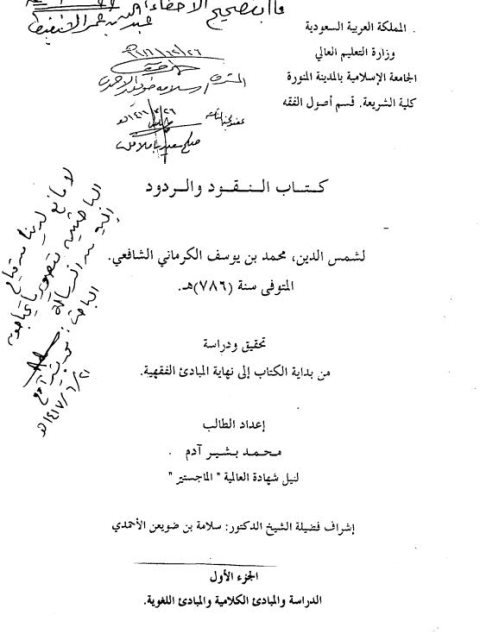 المملكة العربية السعودية
وزارة التعليم العالي
الجامعة الإسلامية بالمدينة المنورة
كلية الشريعة. قسم أصول الفقه
كتـاب الـنـقـود والـردود
لشمس الدين، محمد بن يوسف الكرماني الشافعي.
المتوفى سنة (٧٨٦)هـ.
تحقيق ودراسة
من بداية الكتاب إلى نهاية المبادئ الفقهية.
إعداد الطالب
محـمـد بـشـيـر آدم
لنيل شهادة العالمية " الماجستير "
إشراف فضيلة الشيخ الدكتور: سلامة بن ضويعن الأحمدي
الجزء الأول
الدراسة والمبادئ الكلامية والمبادئ اللغوية.
لا مانع لدينا من
الباحثين
الباحث: محمد بشير آدم
١٤١٧/٦/٢١هـ